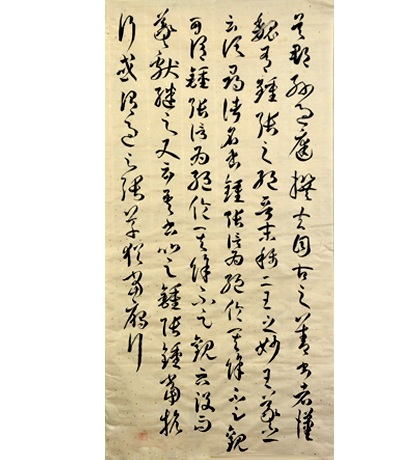 吳郡孫過庭撰夫自古之善書者漢
魏有鍾張之絕晉末稱二王之妙王羲之
云頃尋諸名書鍾張信為絕倫其餘不足觀
可謂鍾張信為絕倫其餘不足觀云沒而
羲獻繼之又云吾書比之鍾張鍾當抗
行或謂過之張草猶當雁行